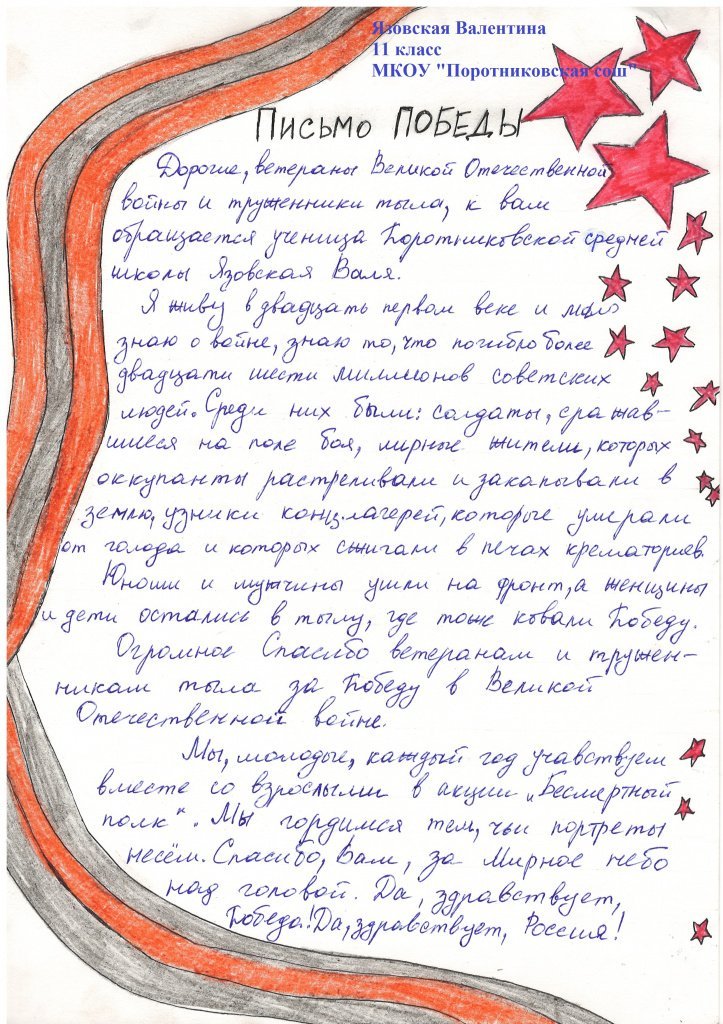 Язовская Валентина
11 класс
МКОУ "Поротниковская сош"
Письмо ПОБЕДЫ
Дорогие, ветераны Великой Отечественной
войны и труженники тыла, к вам
обращается ученица Поротниковской средней
школы Язовская Валя.
Я живу в двадцать первом веке и мало
знаю о войне, знаю то, что погибло более
двадцати шести миллионов советских
людей. Среди них были: солдаты, сражав-
шиеся на поле боя, мирные жители, которых
оккупанты растреливали и закапывали в
землю, узники конц.лагерей, которые умерали
от голода и которых сжигали в печах крематориев.
Юноши и мужчины ушли на фронт, а женщины
и дети остались в тылу, где тоже ковали Победу.
Огромное Спасибо ветеранам и тружен-
никам тыла за Победу в Великой
Отечественной войне.
Мы, молодые, каждый год учавствуем
вместе со взрослыми в акции „Бесмертный
полк". Мы гордимся тем, чьи портреты
несём. Спасибо, Вам, за Мирное небо
над головой. Да, здравствует,
Победа! Да, здравствует, Россия!